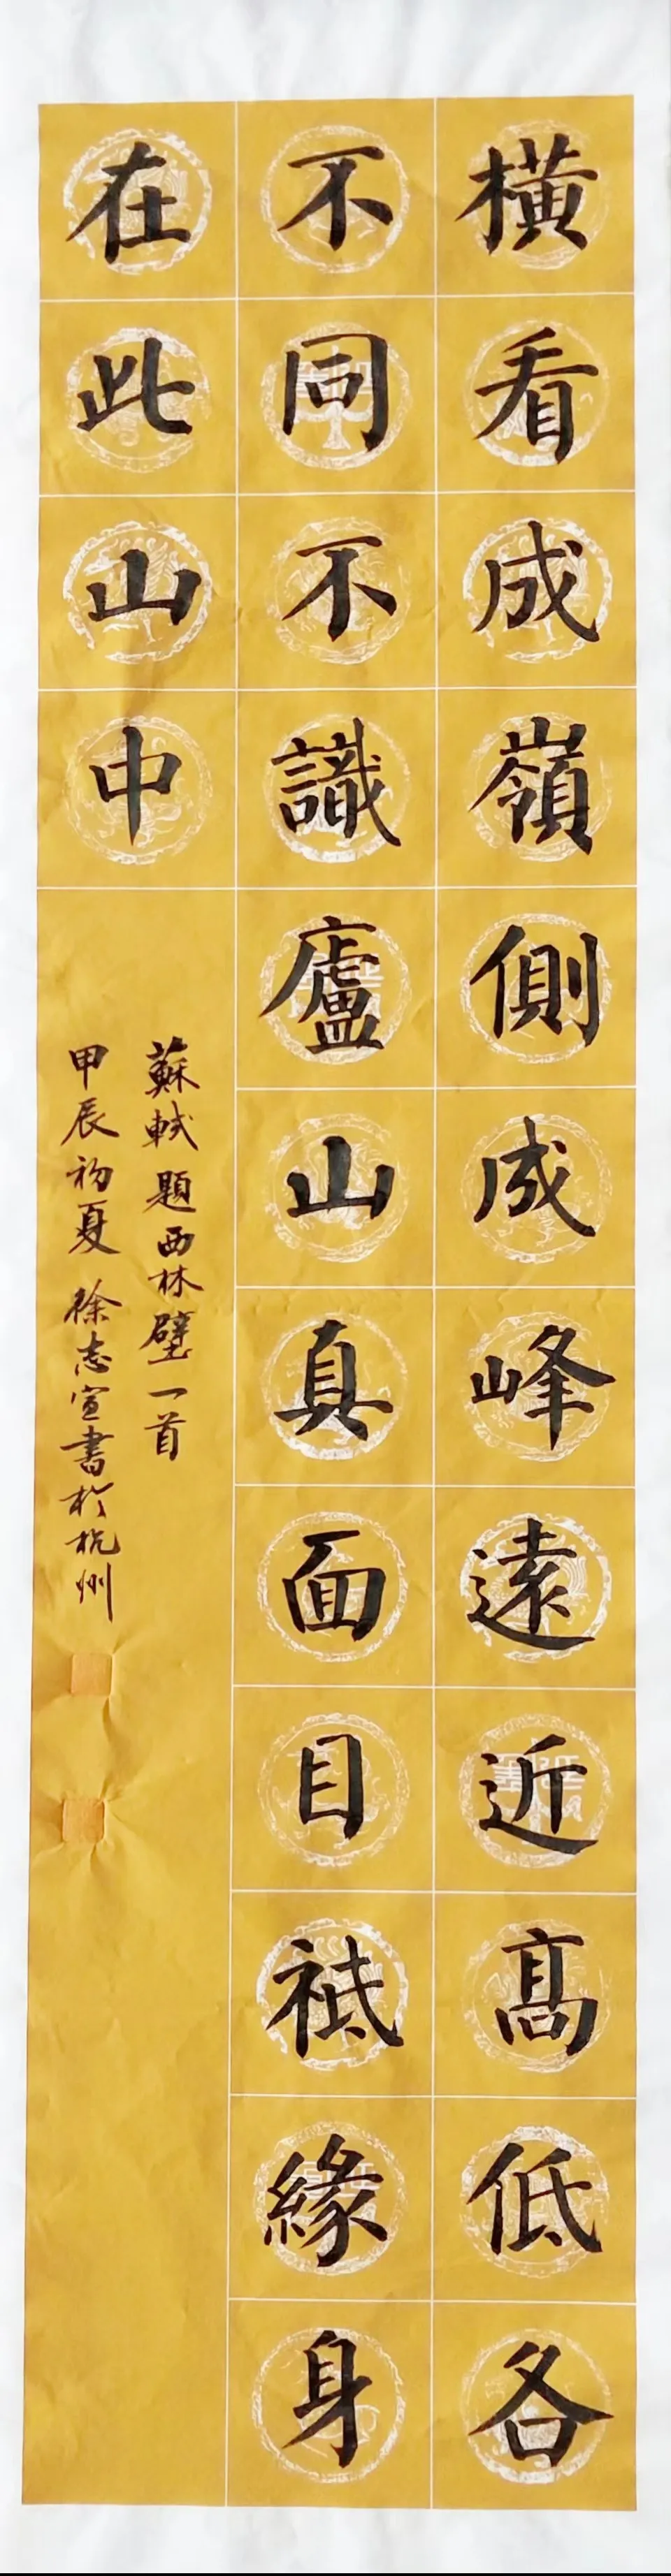 橫看成嶺側成峰遠近高低各
不同不識廬山真面目祗緣身
在此山中
蘇軾題西林壁一首
甲辰初夏徐志宣書於杭州